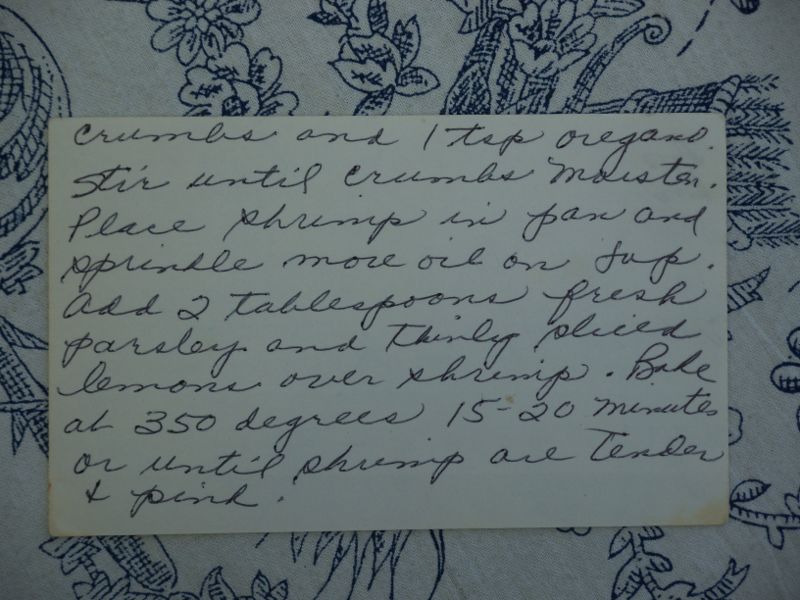 crumbs and 1 tsp oregano.
Stir until crumbs moisten.
Place shrimp in pan and
sprinkle more oil on top.
Add 2 tablespoons fresh
parsley and thinly sliced
lemons over shrimp. Bake
at 350 degrees 15-20 minutes
or until shrimp are tender
& pink.